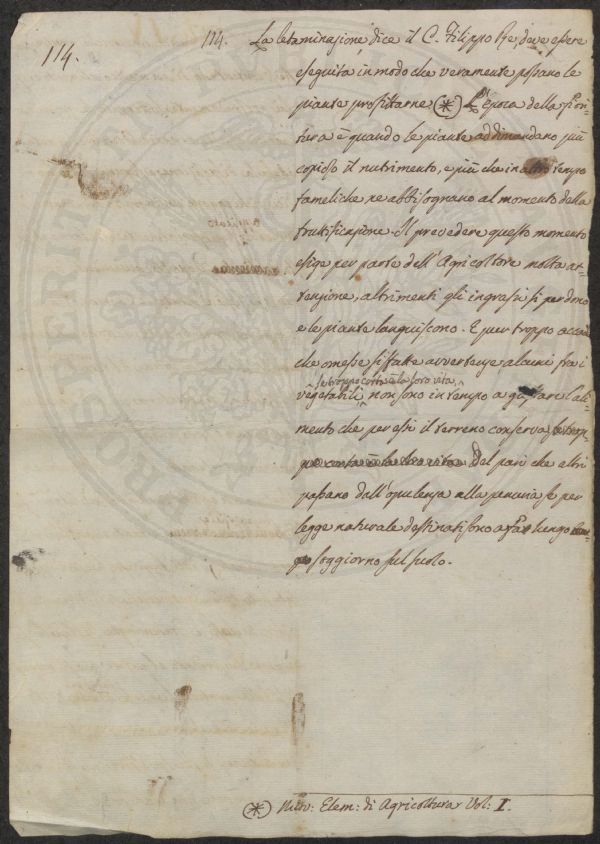 114.
114. La letaminazione dice il C. Filippo Re, deve essere
eseguita in modo che veramente possano le
piante profittarne (*) L'epoca della fiori-
tura è quando le piante addimandano più
copioso il nutrimento, e più che in altro tempo
fameliche ne abbisognano al momento della
fruttificazione. Il prevedere questo momento
esige per parte dell'Agricoltore molta at-
tenzione, altrimenti gli ingrassi si perdono
e le piante languiscono. E pur troppo accade
che omesse siffatte avvertenze alcuni fra i
se troppo corta è la loro vita
vegetabili non sono in tempo a gustare l'ali-
mento che per essi il terreno conserva se trop-
po corta è la loro vita Del pari che altri
passano dall'opulenza alla penuria se per
legge naturale destinati sono a far lungo
soggiorno sul suolo.
(*) Nuov: Elem: di Agricoltura Vol: I.